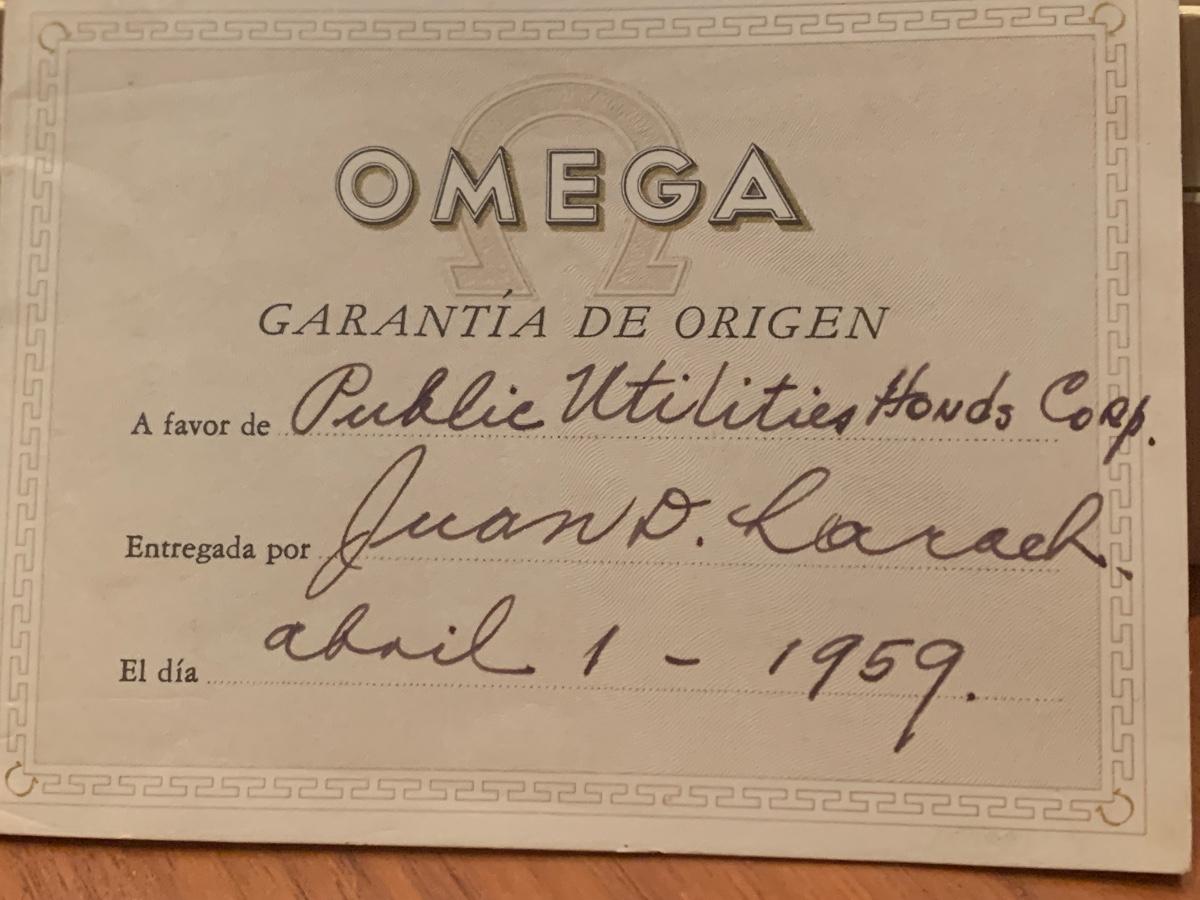 OMEGA
GARANTÍA DE ORIGEN
A favor de Public Utilities Honds Corp.
Entregada por Juan D. Larach.
El día abril 1 - 1959.